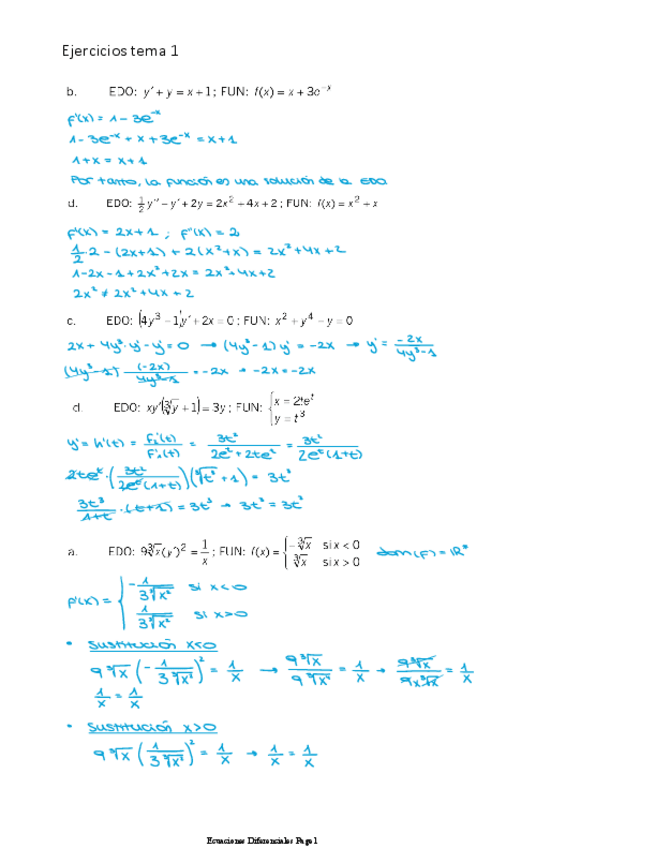 Ejercicios tema 1
b. EDO: y′ + y = x + 1 ; FUN: f(x) = x + 3e^{-x}
f'(x) = 1 - 3e^{-x}
1 - 3e^{-x} + x + 3e^{-x} = x + 1
1 + x = x + 1
Por tanto, la función es una solución de la EDO
d. EDO: 1/2 y″ - y′ + 2y = 2x² + 4x + 2 ; FUN: f(x) = x² + x
f'(x) = 2x + 1 ; f''(x) = 2
1/2 · 2 - (2x+1) + 2(x²+x) = 2x² + 4x + 2
1 - 2x - 1 + 2x² + 2x = 2x² + 4x + 2
2x² ≠ 2x² + 4x + 2
c. EDO: (4y³ - 1)y′ + 2x = 0 ; FUN: x² + y⁴ - y = 0
2x + 4y³·y' - y' = 0 → (4y³ - 1) y' = -2x → y' = -2x/(4y³-1)
(4y³ - 1) · (-2x)/(4y³-1) = -2x → -2x = -2x
d. EDO: xy′(∛y + 1) = 3y ; FUN: { x = 2te^t
y = t³
3t³/(1+t) · (t+1) = 3t³ → 3t³ = 3t³
a. EDO: 9∛x(y′)² = 1/x ; FUN: f(x) = { -∛x si x < 0
∛x si x > 0 dom(f) = ℝ*
f'(x) = { -1/(3∛x²) si x<0
1/(3∛x²) si x>0
• Sustitución x<0
1/x = 1/x
• Sustitución x>0
9∛x (1/(3∛x²))² = 1/x → 1/x = 1/x
Ecuaciones Diferenciales Page 1